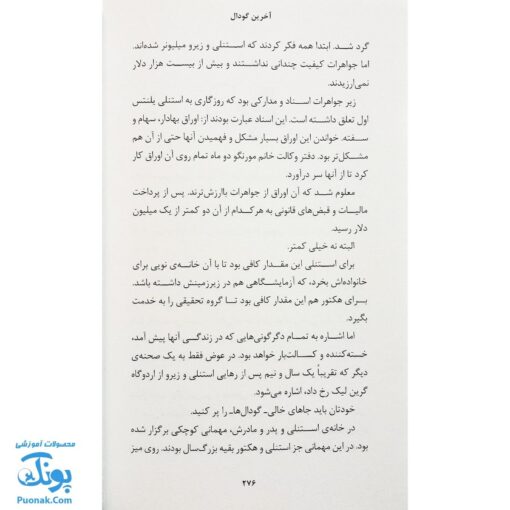 آخرین گودال
گرد شد. ابتدا همه فکر کردند که استنلی و زیرو میلیونر شده‌اند.
اما جواهرات کیفیت چندانی نداشتند و بیش از بیست هزار دلار
نمی‌ارزیدند.
زیر جواهرات اسناد و مدارکی بود که روزگاری به استنلی یلنتس
اول تعلق داشته است. این اسناد عبارت بودند از: اوراق بهادار، سهام و
سفته. خواندن این اوراق بسیار مشکل و فهمیدن آنها حتی از آن هم
مشکل‌تر بود. دفتر وکالت خانم مورنگو دو ماه تمام روی آن اوراق کار
کرد تا از آنها سر درآورد.
معلوم شد که آن اوراق از جواهرات باارزش‌ترند. پس از پرداخت
مالیات و قبض‌های قانونی به هرکدام از آن دو کمتر از یک میلیون
دلار رسید.
البته نه خیلی کمتر.
برای استنلی این مقدار کافی بود تا با آن خانه‌ی نویی برای
خانواده‌اش بخرد، که آزمایشگاهی هم در زیرزمینش داشته باشد.
برای هکتور هم این مقدار کافی بود تا گروه تحقیقی را به خدمت
بگیرد.
اما اشاره به تمام دگرگونی‌هایی که در زندگی آنها پیش آمد،
خسته‌کننده و کسالت‌بار خواهد بود. در عوض فقط به یک صحنه‌ی
دیگر که تقریباً یک سال و نیم پس از رهایی استنلی و زیرو از اردوگاه
گرین لیک رخ داد، اشاره می‌شود.
خودتان باید جاهای خالی ـ گودال‌ها ـ را پر کنید.
در خانه‌ی استنلی و پدر و مادرش، مهمانی کوچکی برگزار شده
بود. در این مهمانی جز استنلی و هکتور بقیه بزرگ‌سال بودند. روی میز
۲۷۶
محصولات آموزشی
پونک
Puonak.Com